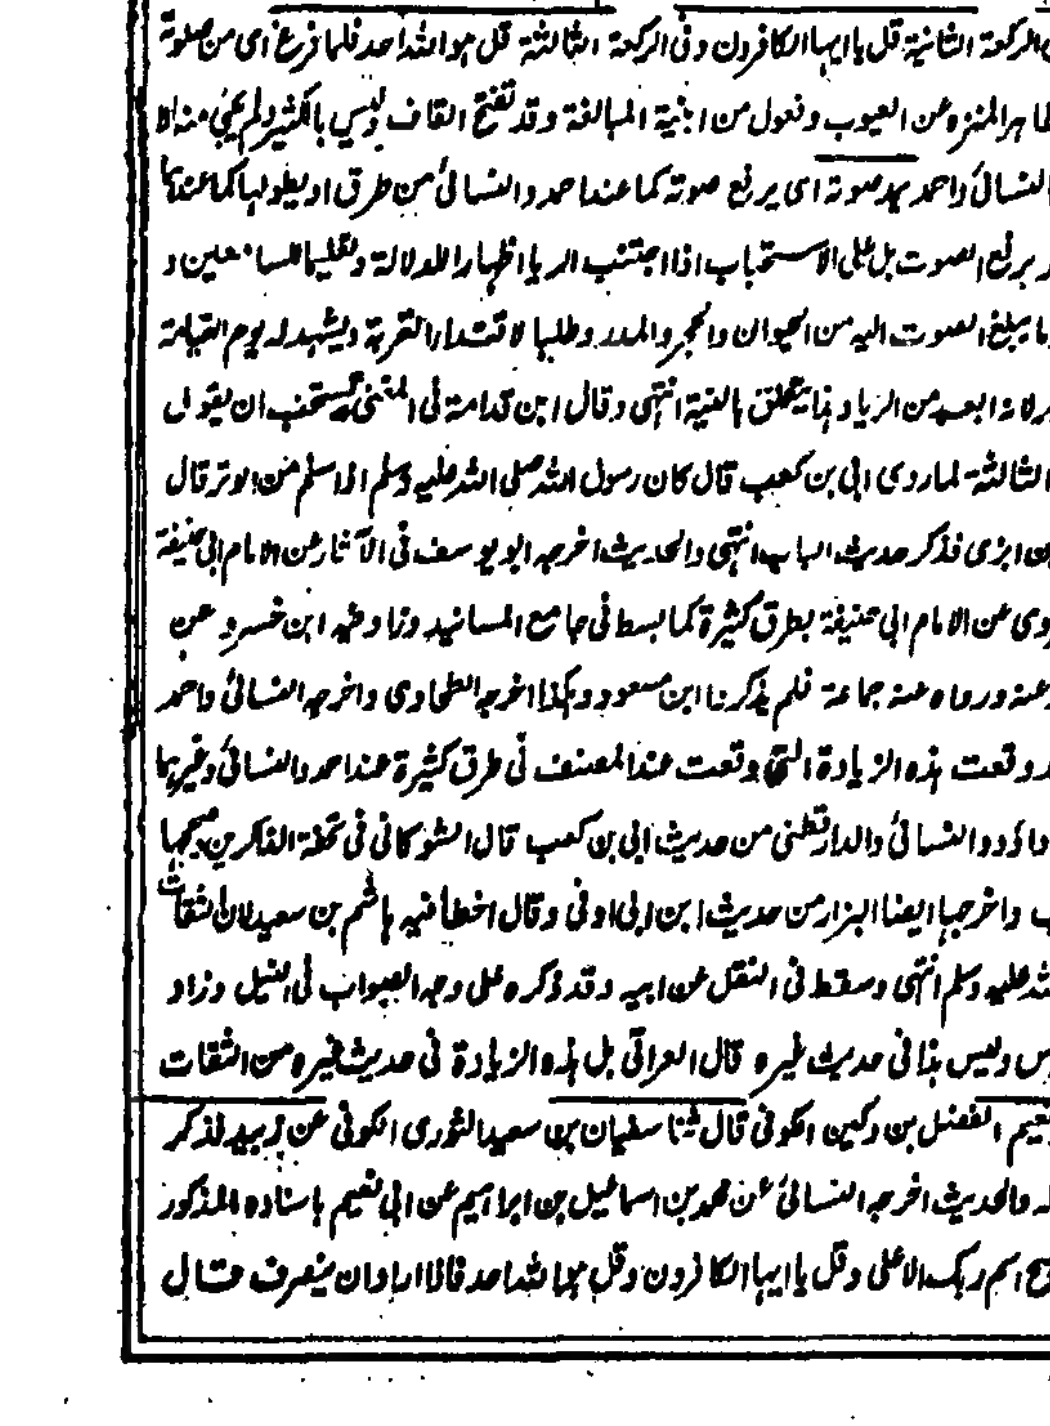 الركعة الثانية قل يا ايها الكافرون وفى الركعة الثالثة قل هو الله احد فلما فرغ اى من صلوته
المنزه عن العيوب وفعول من ابنية المبالغة وقد تفتح القاف وليس بالكثير ولم يجئ منه الا
النسائى واحمد يمد صوته اى يرفع صوته كما عند احمد والنسائى من طرق او يطولها كما عندهما
برفع الصوت بل على الاستحباب اذا اجتنب الريا اظهارا للدلالة وتعليما للسامعين و
ما يبلغ الصوت اليه من الحيوان والحجر والمدر وطلبا لاقتداء القربة ويشهد له يوم القيامة
لانه ابعد من الرياء وهذا يتعلق بالنية انتهى وقال ابن قدامة فى المغنى يستحب ان يقول
الثالثة لما روى ابى بن كعب قال كان رسول الله صلى الله عليه وسلم اذا سلم من الوتر قال
ابزى فذكر حديث الباب انتهى والحديث اخرجه ابو يوسف فى الآثار عن الامام ابى حنيفة
روى عن الامام ابى حنيفة بطرق كثيرة كما بسط فى جامع المسانيد وزاد فيه ابن خسرو عن
عنه ورواه عنه جماعة فلم يذكرنا ابن مسعود وهكذا اخرجه الطحاوى واخرجه النسائى واحمد
وقعت هذه الزيادة التى وقعت عند المصنف فى طرق كثيرة عند احمد والنسائى وغيرهما
داؤد والنسائى والدارقطنى من حديث ابى بن كعب قال الشوكانى فى تحفة الذاكرين صححها
واخرجها ايضا البزار من حديث ابن ابى اوفى وقال اخطأ فيه هاشم بن سعيد لان الثقات
الله عليه وسلم انتهى وسقط فى النقل عن ابيه وقد ذكره على وجه الصواب فى النيل وزاد
وليس هذا فى حديث غيره قال العراقى بل هذه الزيادة فى حديث غيره من الثقات
نعيم الفضل بن دكين الكوفى قال ثنا سفيان بن سعيد الثورى الكوفى عن زبيد فذكر
والحديث اخرجه النسائى عن محمد بن اسماعيل بن ابراهيم عن ابى نعيم باسناده المذكور
اسم ربك الاعلى وقل يا ايها الكافرون وقل هو الله احد فاذا اراد ان ينصرف قال